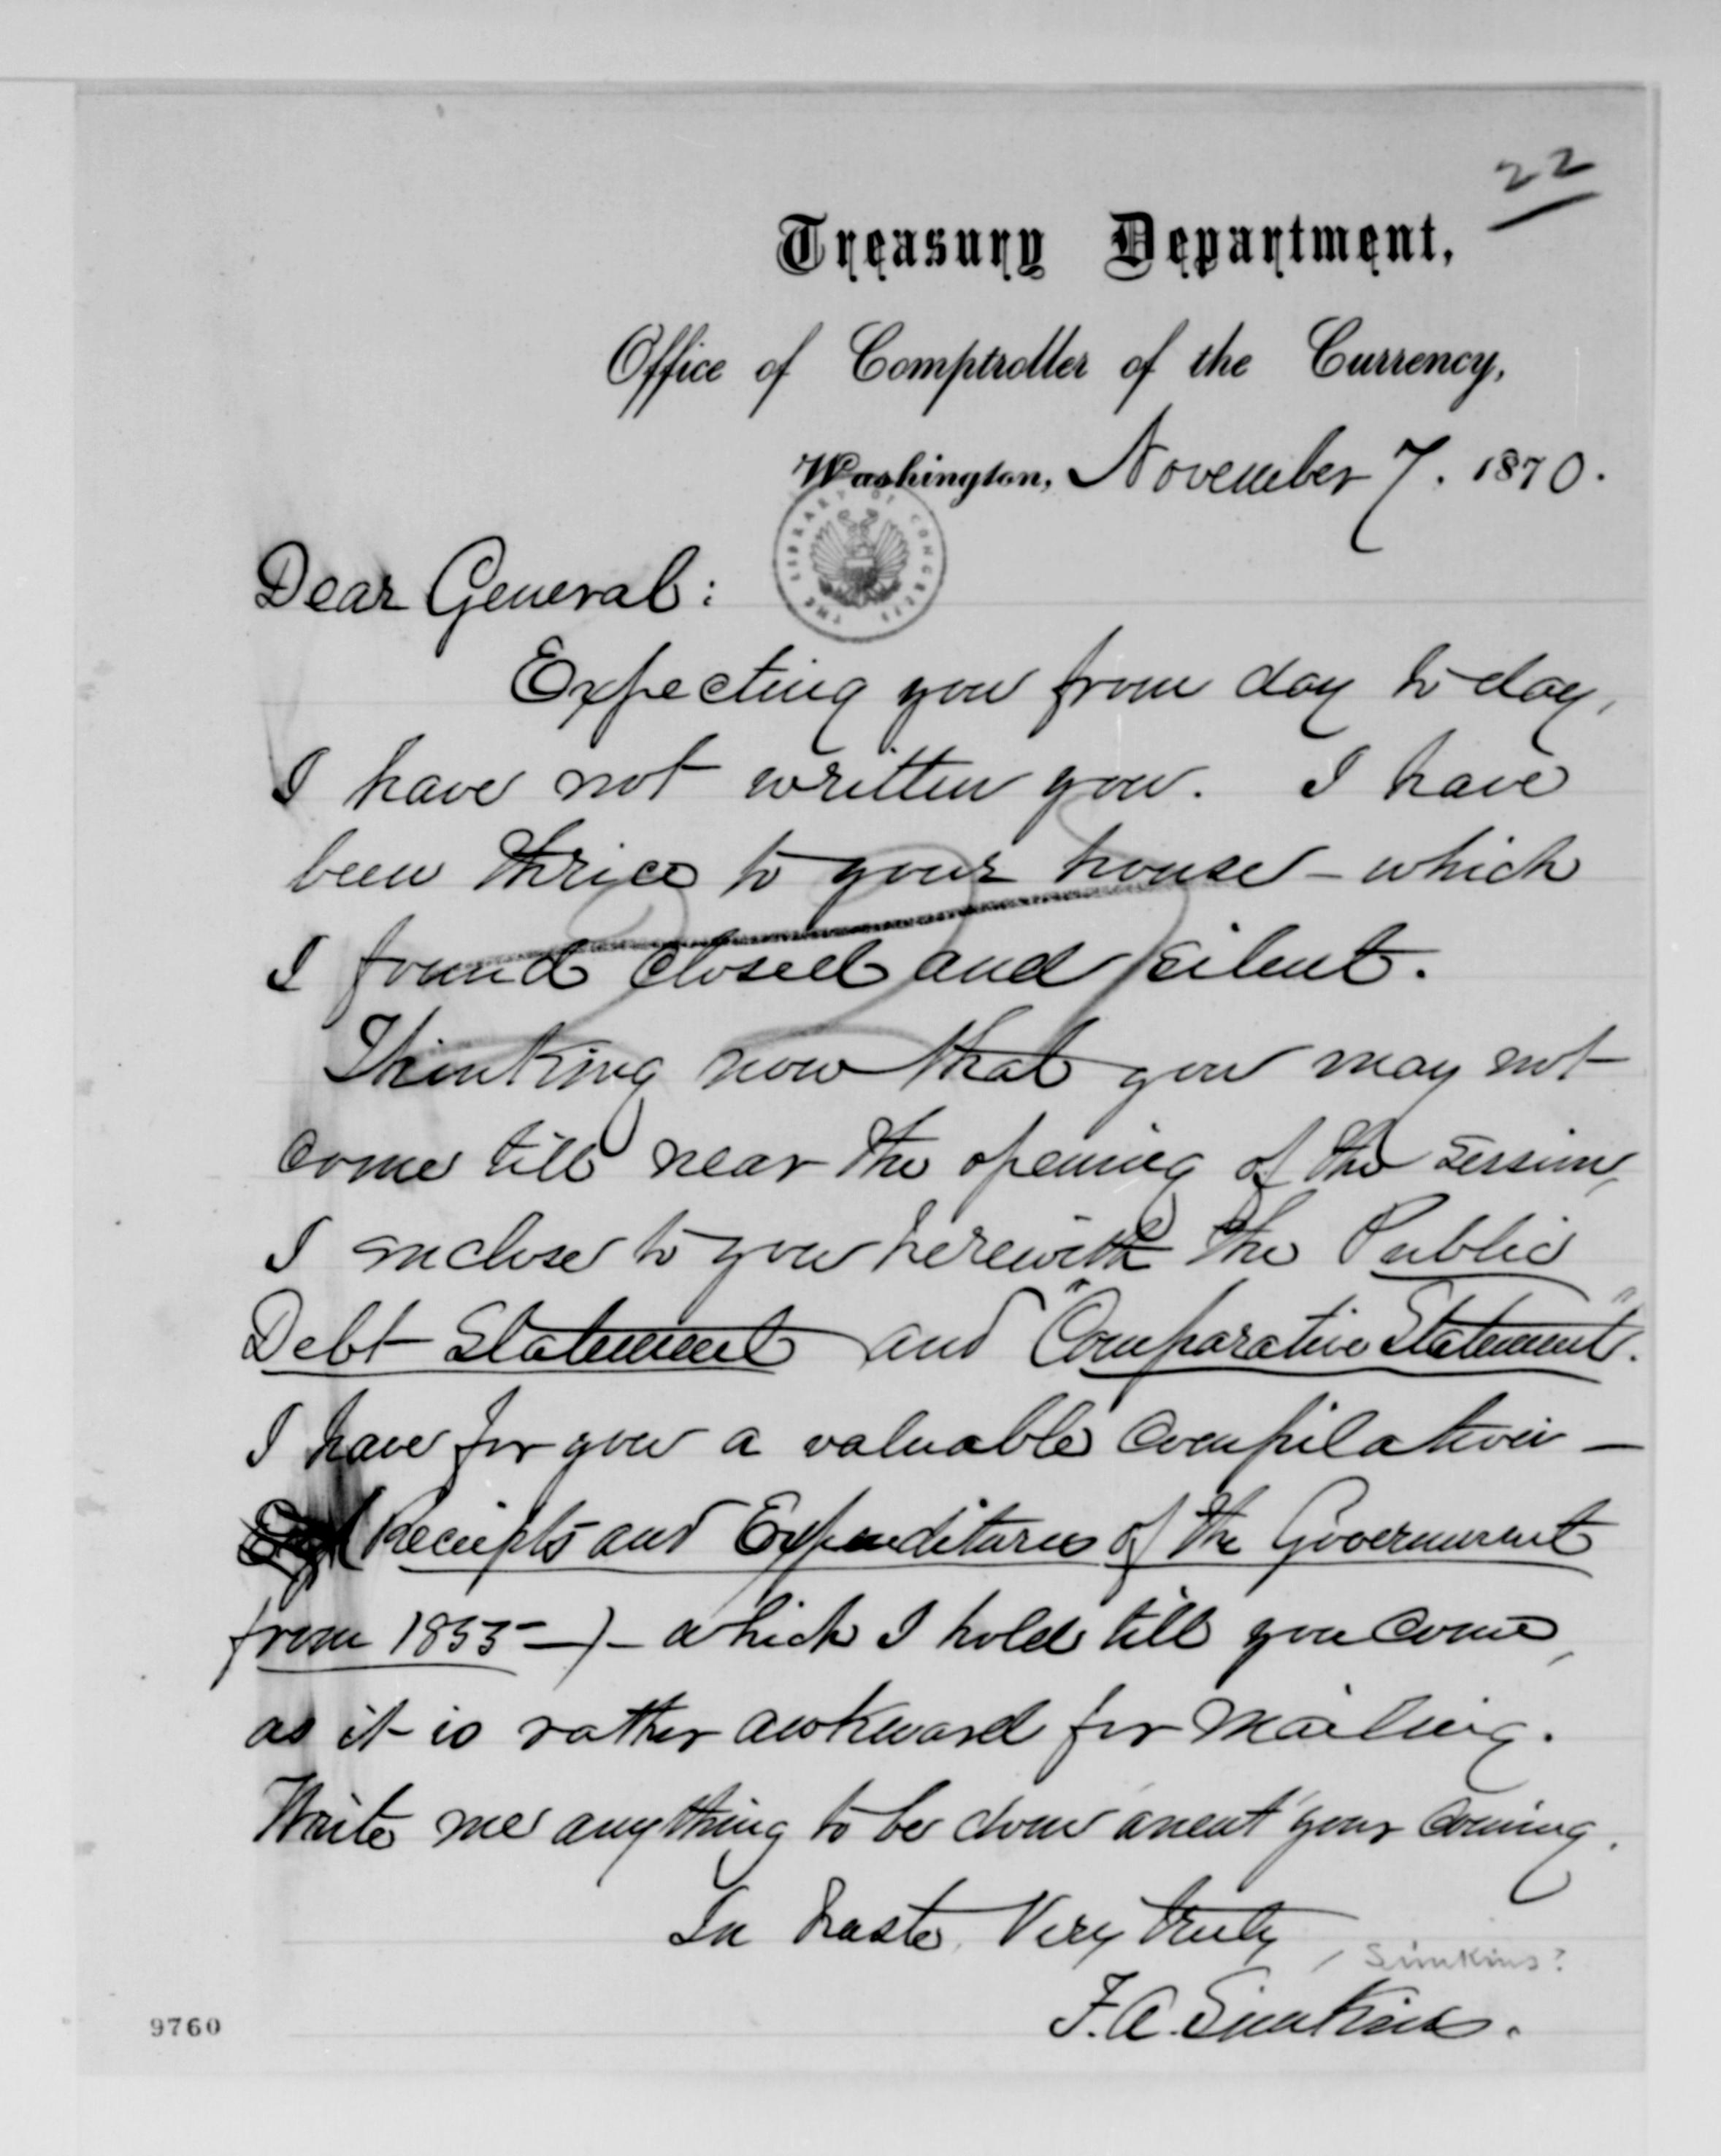 22
Treasury Department,
Office of Comptroller of the Currency,
Washington, November 7. 1870.
THE LIBRARY OF CONGRESS
Dear General:
Expecting you from day to day,
I have not written you. I have
been thrice to your house – which
I found closed and silent.
Thinking now that you may not
come till near the opening of the session,
I inclose to you herewith the Public
Debt Statement and "Comparative Statement".
I have for you a valuable compilation –
Receipts and Expenditures of the Government
from 1855 –) – which I hold till you come,
as it is rather awkward for mailing.
Write me anything to be done anent your coming.
In haste, Very truly
Simkins?
F. A. Simkins.
9760